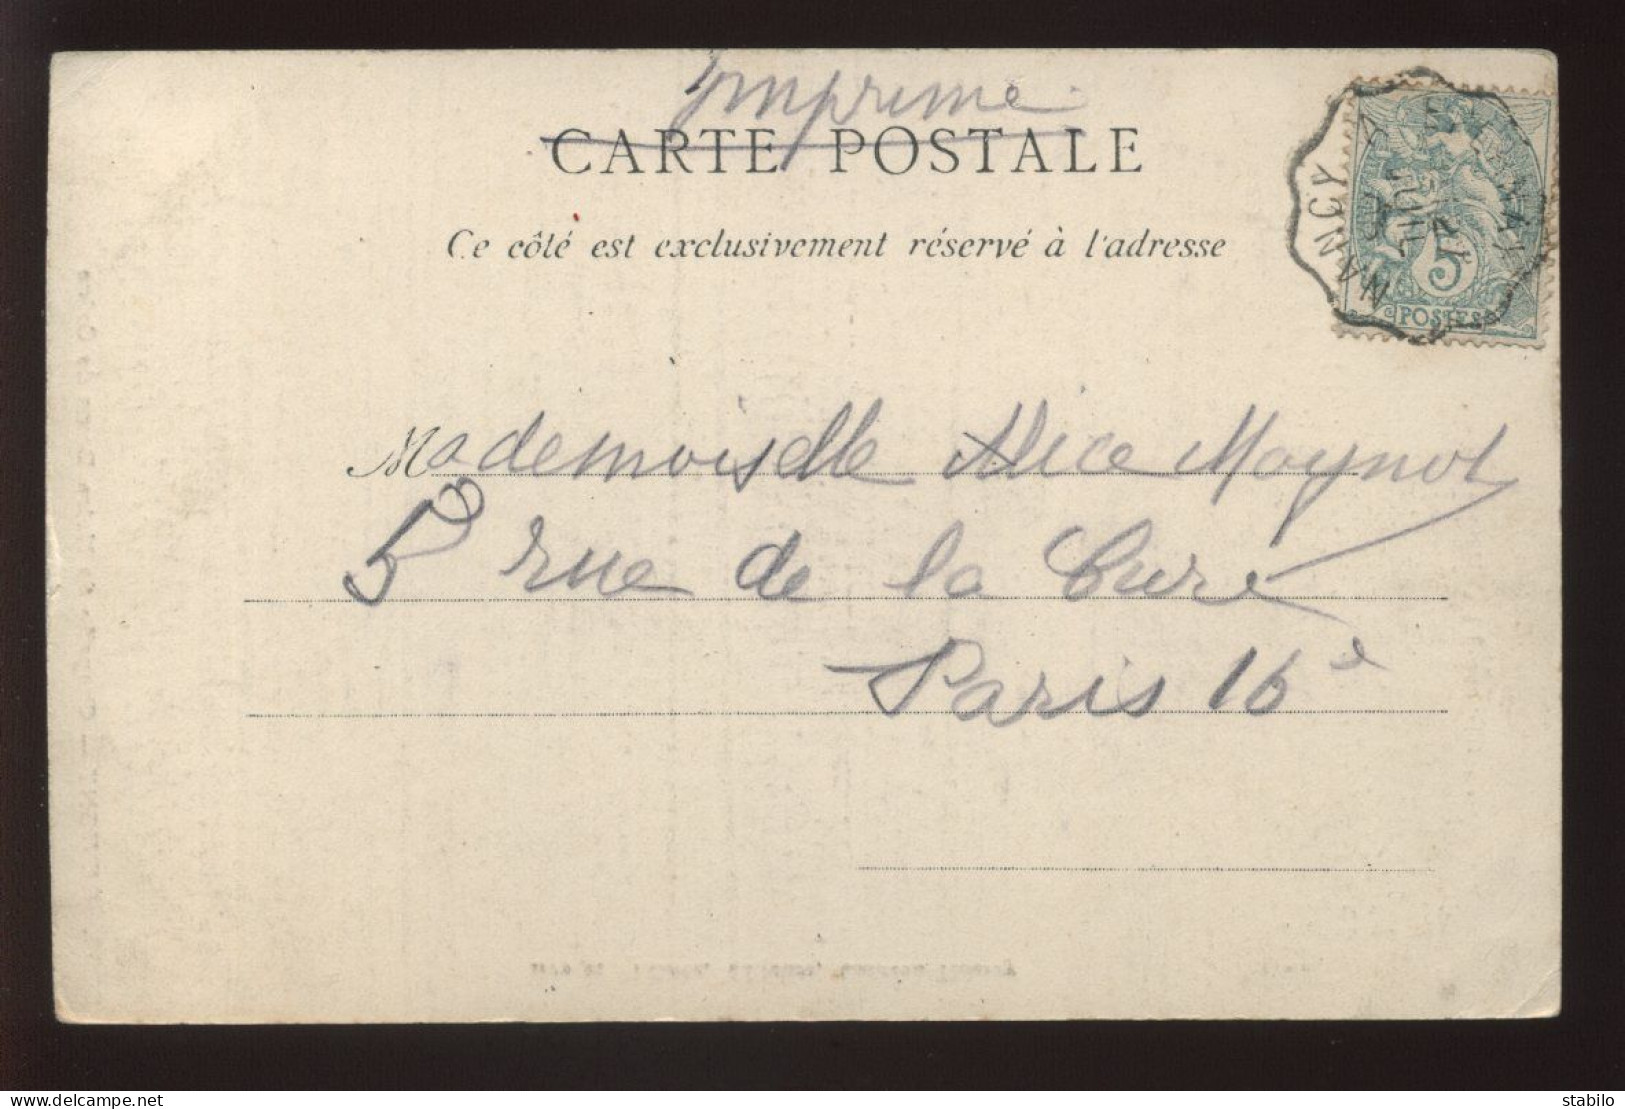 Imprimé
CARTE POSTALE
Ce côté est exclusivement réservé à l'adresse
NANCY A
JUIL
5
POSTES
Mademoiselle Alice Moynot
58 rue de la Cure
Paris 16e
delcampe.net
stabilo